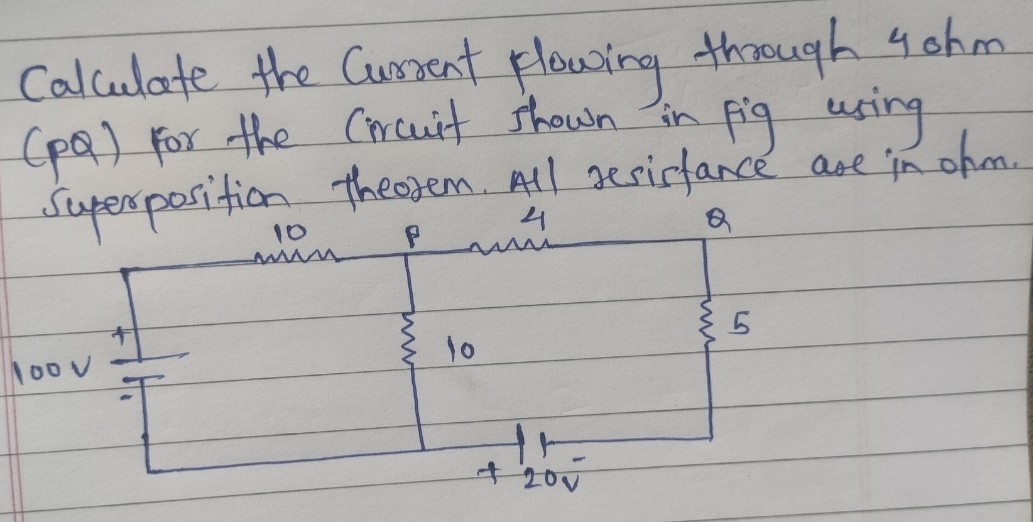 Calculate the Current flowing through 4 ohm
(PQ) for the Circuit shown in fig using
Superposition theorem. All resistance are in ohm.
10 P 4 Q
+
100 V
-
10
5
+ 20V -